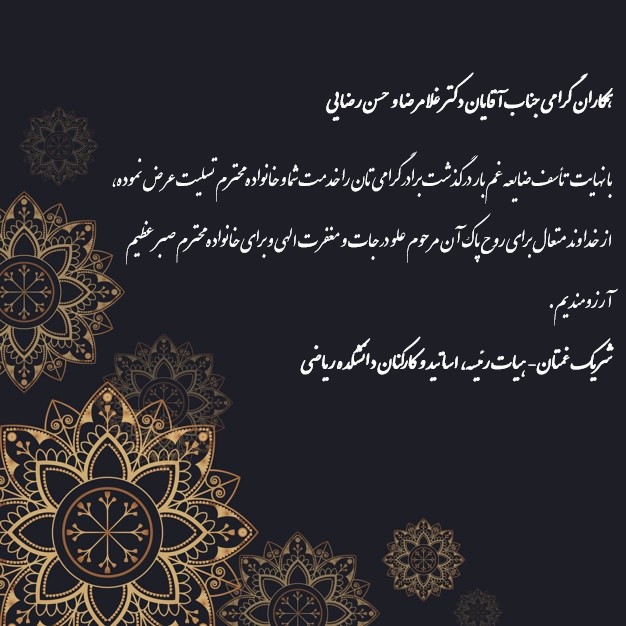 همکاران گرامی جناب آقایان دکتر غلامرضا و حسن رضایی
با نهایت تأسف ضایعه غم بار درگذشت برادر گرامی تان را خدمت شما و خانواده محترم تسلیت عرض نموده،
از خداوند متعال برای روح پاک آن مرحوم علو درجات و مغفرت الهی و برای خانواده محترم صبر عظیم
آرزومندیم.
شریک غمتان- هیات رئیسه، اساتید و کارکنان دانشکده ریاضی